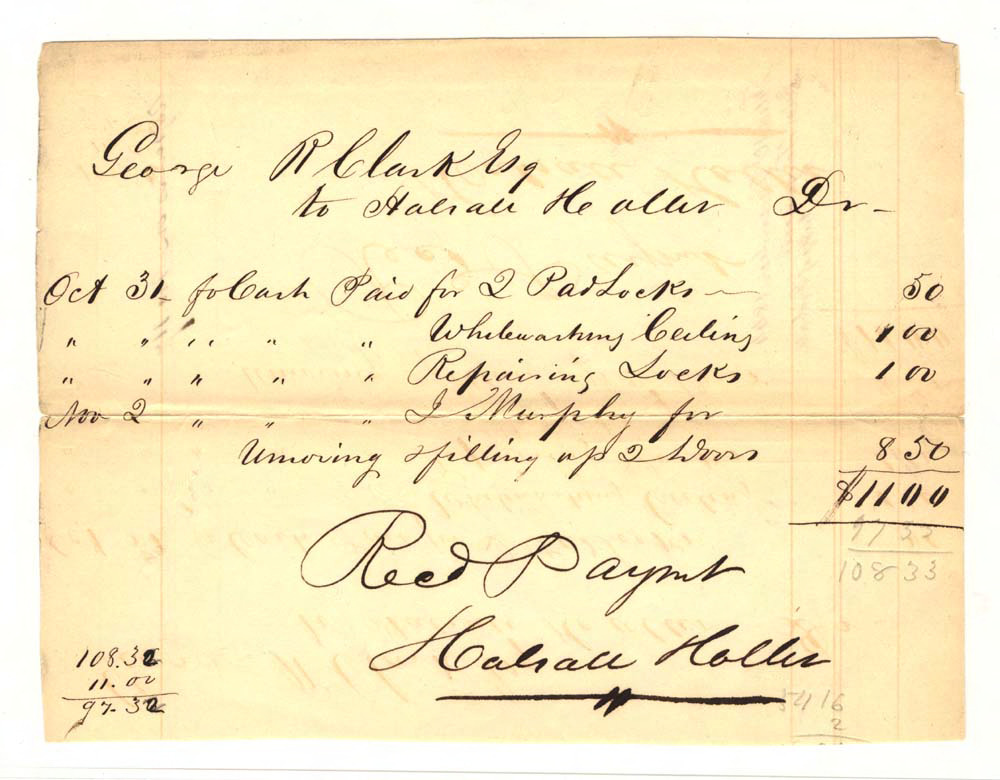 George R Clark Esq
to Halsall Holler Dr
Oct 31 To Cash Paid for 2 Pad Locks 50
" " " " " Whitewashing Ceiling 1 00
" " " " " Repairing Locks 1 00
Nov 2 " " " J Murphy for
filling up 2 Doors 8 50
$11 00
97 33
108 33
Recd Paymt
Halsall Holler
108.32
11.00
97.32
5416
2